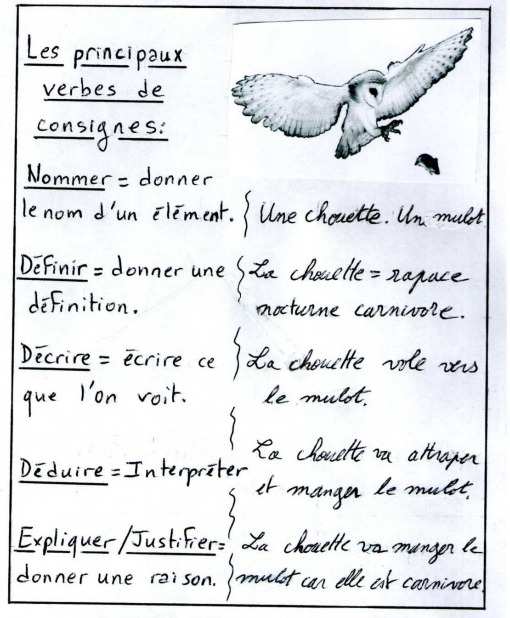 Les principaux
verbes de
consignes:
Nommer = donner
le nom d'un élément. { Une chouette. Un mulot
Définir = donner une { La chouette = rapace
définition. nocturne carnivore.
Décrire = écrire ce } La chouette vole vers
que l'on voit. le mulot.
La chouette va attraper
Déduire = Interpréter
et manger le mulot.
Expliquer/Justifier = La chouette va manger le
donner une raison. { mulot car elle est carnivore.